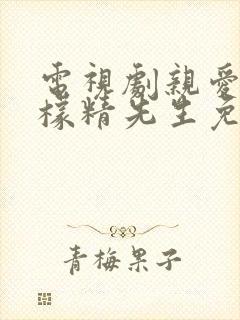 電視劇親愛
檬精先生免
青梅果子